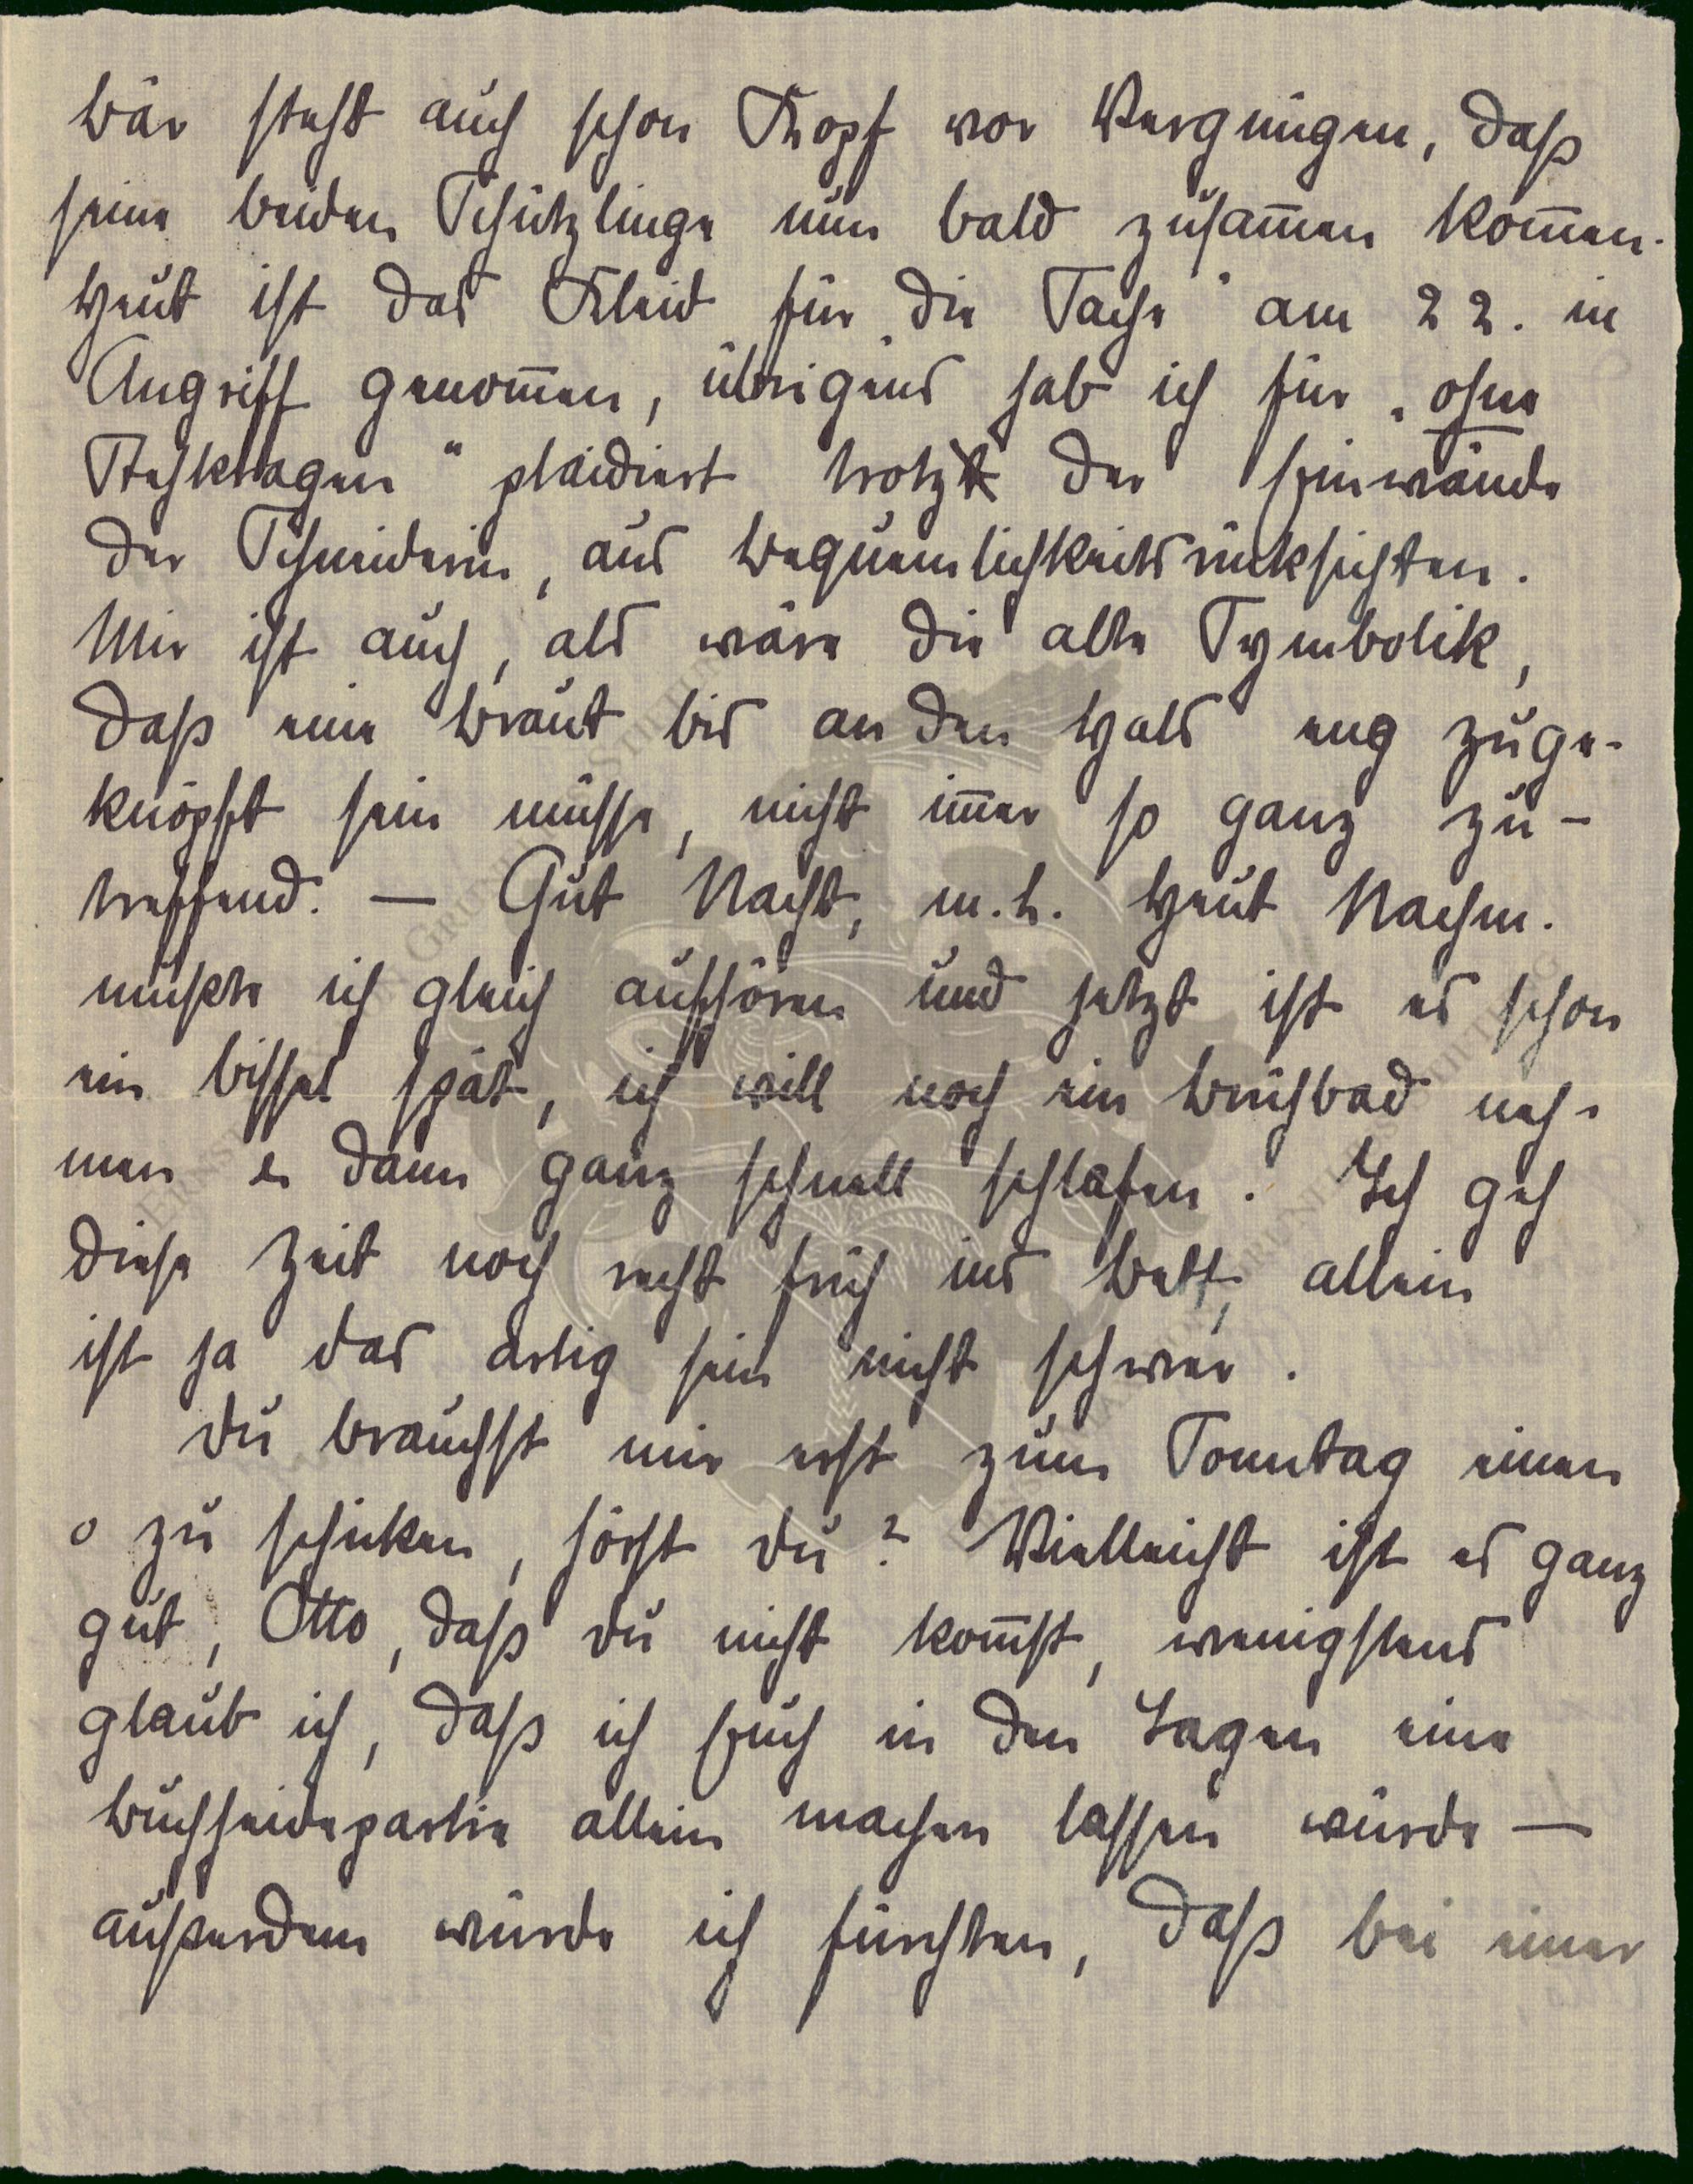 Bär steht auch schon Kopf vor Vergnügen, daß
seine beiden Schützlinge nun bald zusam̅en kom̅en.
Heut ist das Kleid für „die Sache“ am 22. in
Angriff genom̅en, übrigens hab ich für „ohne
Stehkragen“ plaidiert trotz der Einwände
der Schneiderin, aus Bequemlichkeitsrücksichten.
Mir ist auch, als wäre die alte Symbolik,
daß eine Braut bis an den Hals eng zuge-
knöpft sein müsse, nicht im̅er so ganz zu-
treffend. — Gut Nacht, m. L. Heut Nachm.
mußte ich gleich aufhören und jetzt ist es schon
ein bissel spät, ich will noch ein Brühbad neh-
men & dann ganz schnell schlafen. Ich geh
diese Zeit noch recht früh ins Bett, allein
ist ja das artig sein nicht schwer.
Du brauchst mir erst zum Sonntag einen
o zu schicken, hörst du? Vielleicht ist es ganz
gut, Otto, daß du nicht kom̅st, wenigstens
glaub ich, daß ich Euch in den Tagen eine
Buchheidepartie allein machen lassen würde —
außerdem würde ich fürchten, daß bei einer